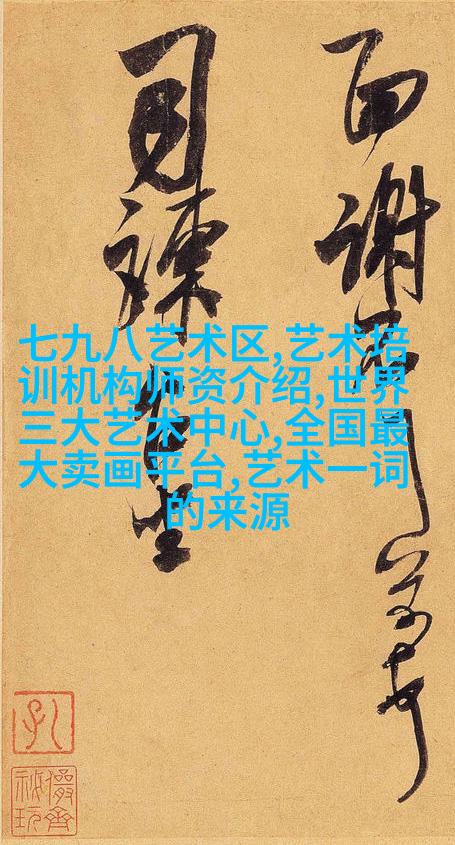 面謝
司諫
坐
七九八艺术区,艺术培
训机构师资介绍,世界
三大艺术中心,全国最
大卖画平台,艺术一词
的来源
儼齋
秘玩